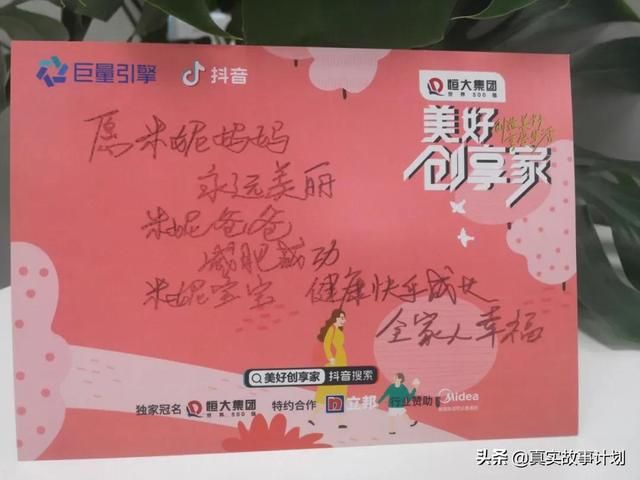 巨量引擎 抖音
恒大集团
世界500强
美好
创享家
愿米妮妈妈
永远美丽
米妮爸爸
减肥成功
米妮宝宝 健康快乐成长
全家人幸福
美好创享家 抖音搜索
独家冠名 恒大集团 特约合作 立邦 行业赞助 Midea
世界500强
头条 @真实故事计划